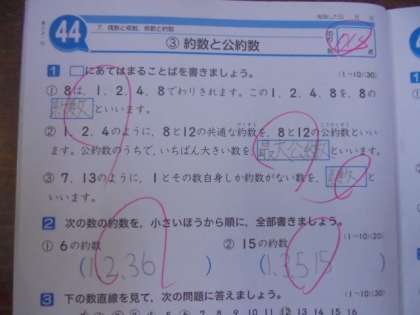 7. 偶数と奇数、倍数と約数
44
③ 約数と公約数
1 □にあてはまることばを書きましょう。
(1つ10点)
① 8は、1、2、4、8でわりきれます。この1、2、4、8を、8の
約数といいます。
② 1、2、4のように、8と12の共通な約数を、8と12の公約数といい
ます。公約数のうちで、いちばん大きい数を、最大公約数といいます。
③ 7、13のように、1とその数自身しか約数がない数を、素数と
いいます。
2 次の数の約数を、小さいほうから順に、全部書きましょう。
① 6の約数
② 15の約数
(1,2,3,6)
(1,3,5,15)
3 下の数直線を見て、次の問題に答えましょう。